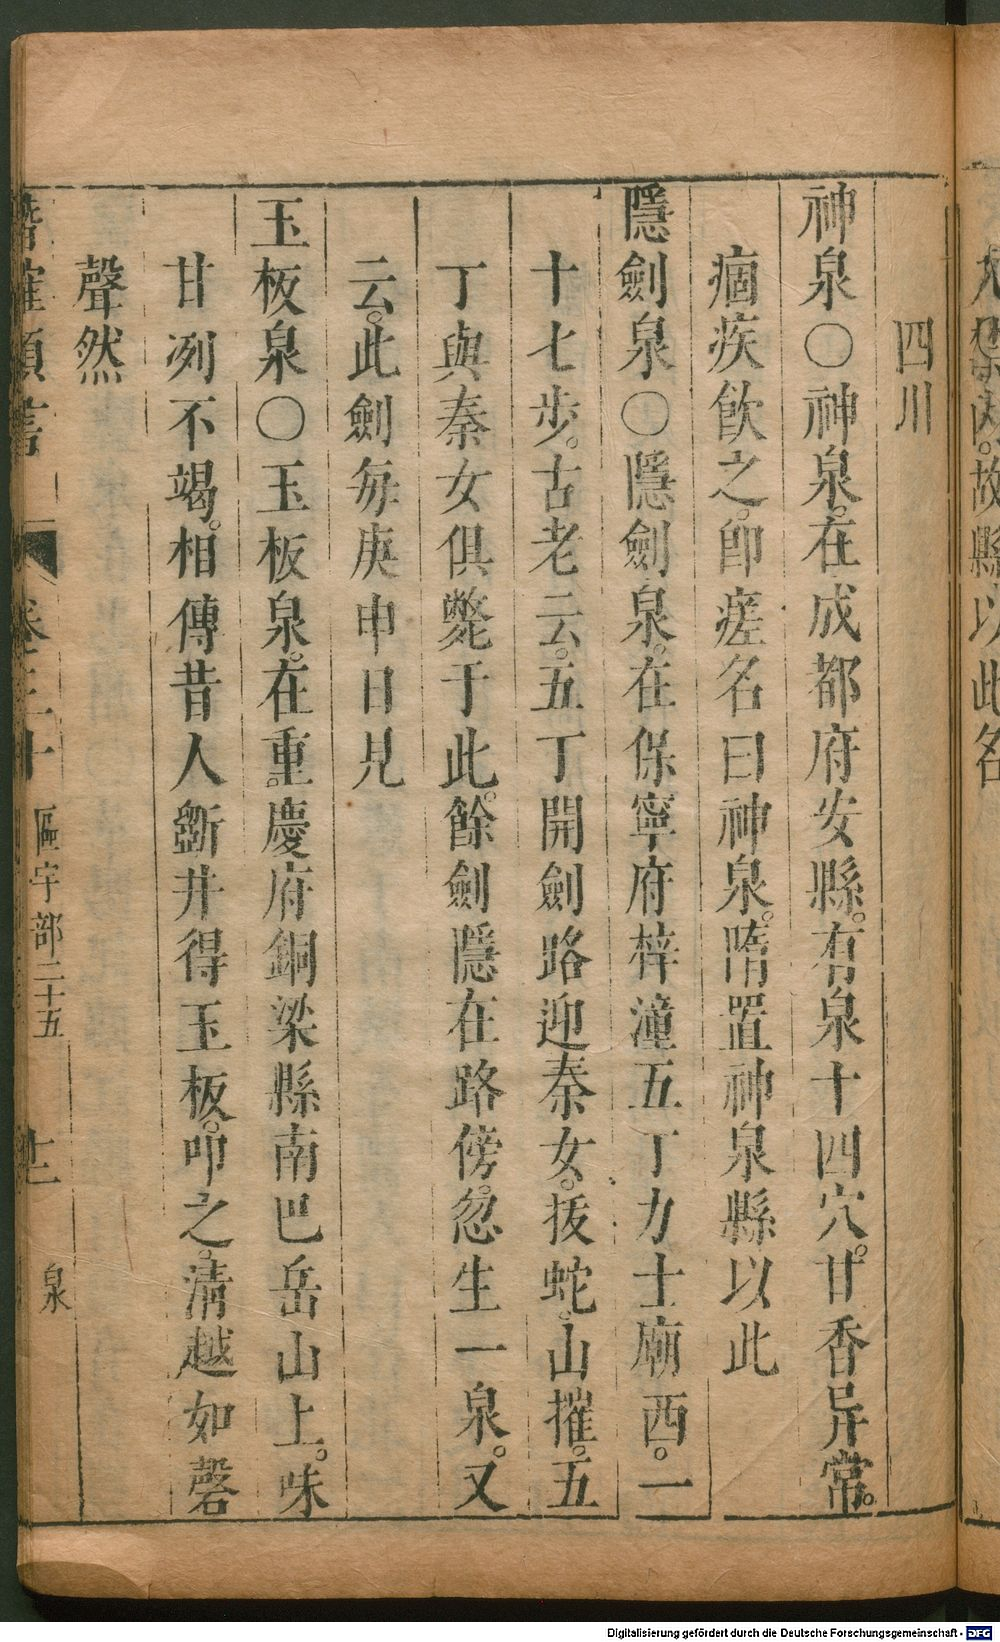 故縣以此名
四川
神泉○神泉。在成都府安縣。有泉十四穴。甘香异常。
痼疾飲之。卽瘥名曰神泉。隋置神泉縣以此
隱劍泉○隱劍泉。在保寧府梓潼五丁力士廟西。一
十七步。古老云。五丁開劍路迎秦女。拔蛇。山摧。五
丁與秦女俱斃。于此。餘劍隱在路傍。忽生一泉。又
云。此劍每庚申日見
玉板泉○玉板泉。在重慶府銅梁縣南巴岳山上。味
甘冽不竭。相傳昔人斵井得玉板。叩之。清越如磬
聲然
潛確類書 卷三十 區宇部二十五 十二 泉
Digitalisierung gefördert durch die Deutsche Forschungsgemeinschaft - DFG